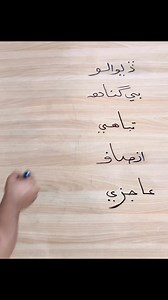 ڏيوالو
بي گناهه
تباهي
انصاف
عاجزي